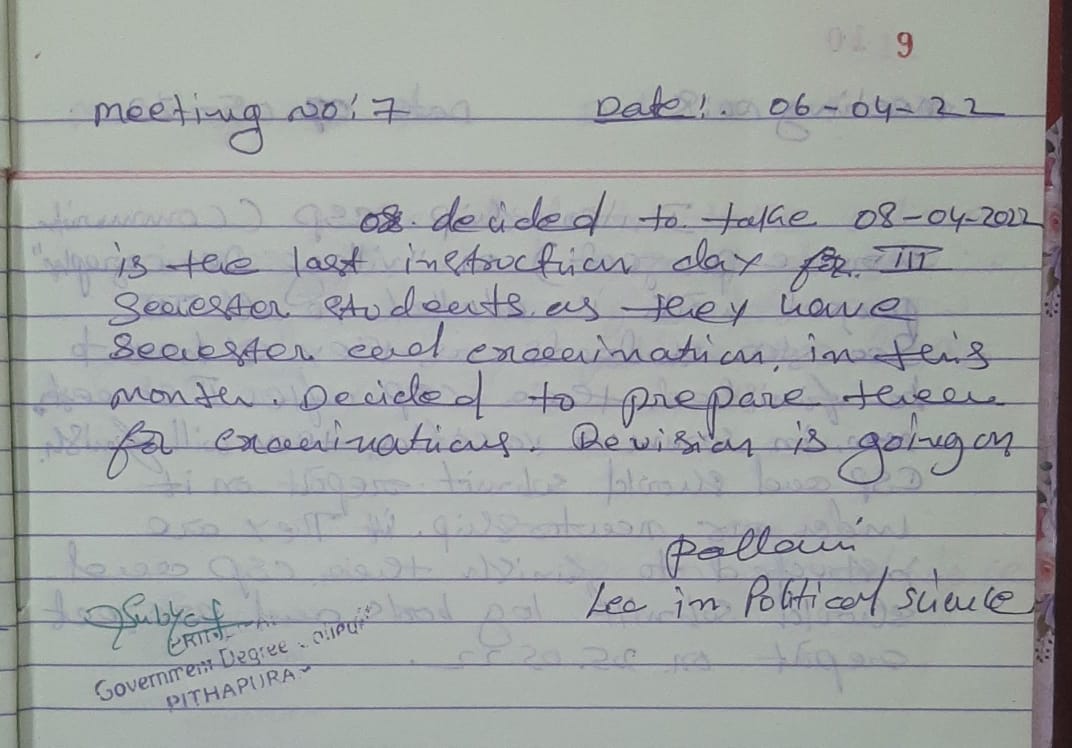 9
meeting no: 7 Date: 06-04-22
decided to take 08-04-2022
is the last instruction day for III
Semester students as they have
Semester end examination, in this
month. Decided to prepare them
for examinations. Revision is going on
Pallavi
Lec in Political science
Government Degree
PITHAPURA